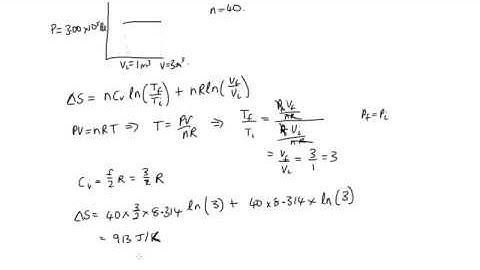 n=40.
P=300×10³Pa
V_i=1m³ V=3m³.
ΔS = nC_v ln(T_f/T_i) + nR ln(V_f/V_i)
PV=nRT ⇒ T = PV/nR ⇒ T_f/T_i = (P_f V_f/nR)/(P_i V_i/nR) P_f=P_i
= V_f/V_i = 3/1 = 3
C_v = f/2 R = 3/2 R
ΔS = 40×3/2×8.314 ln(3) + 40×8.314× ln(3)
= 913 J/K